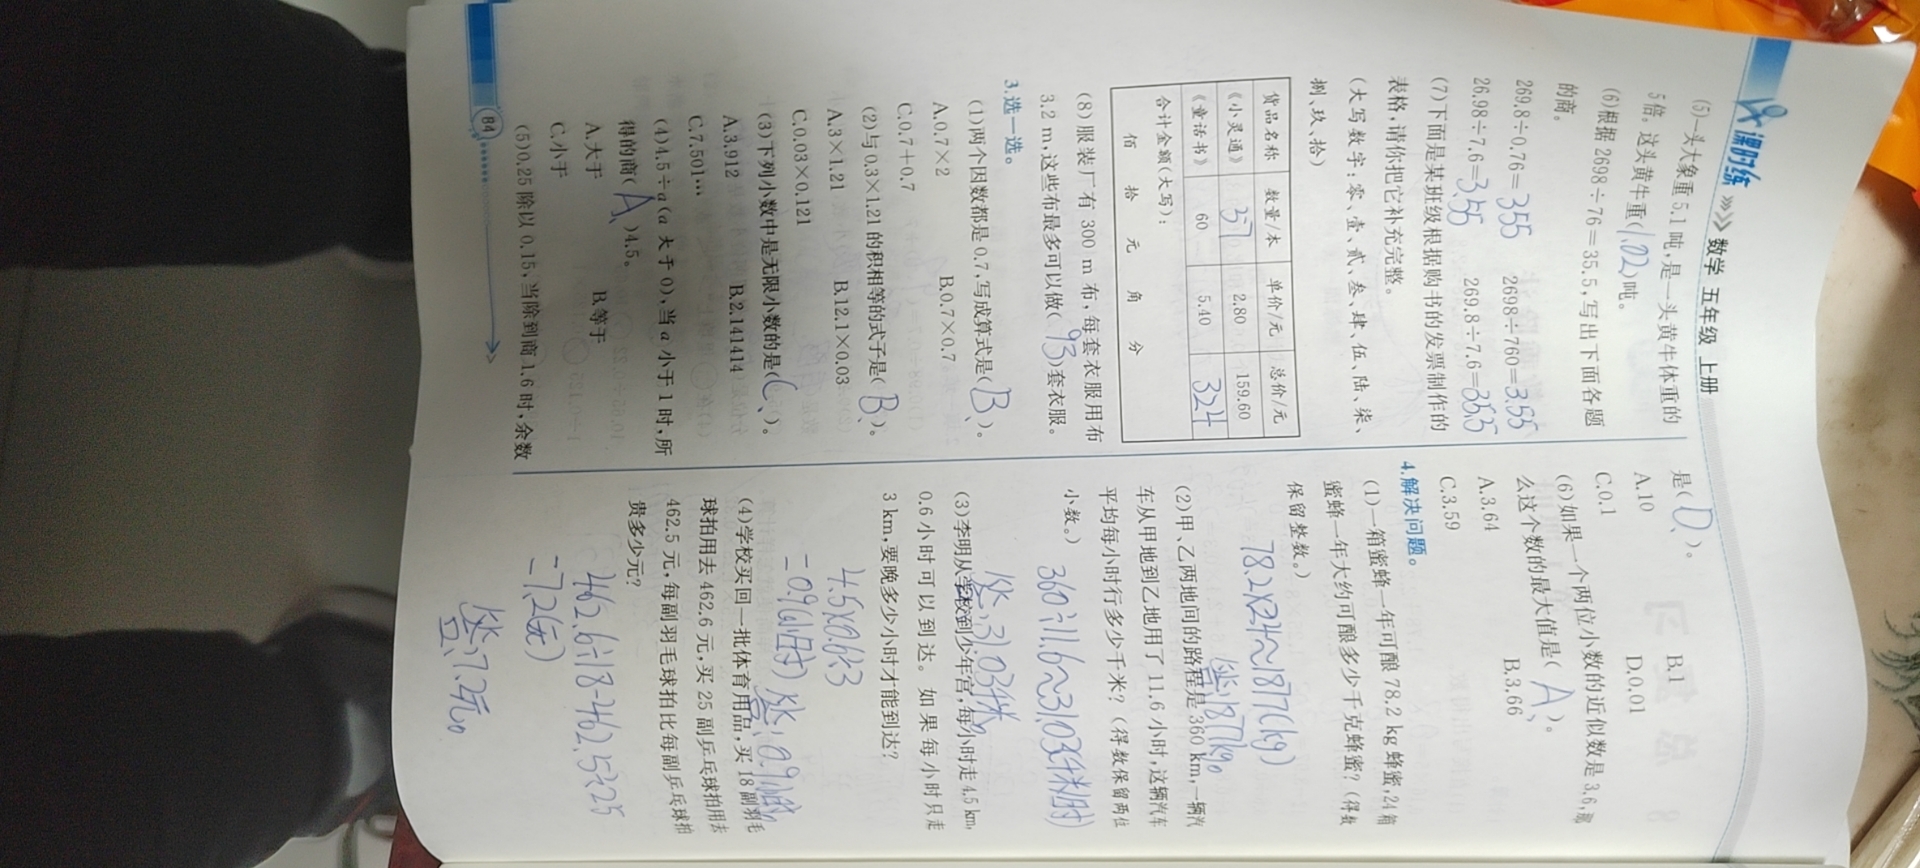 课时练 》》》 数学 五年级 上册
(5)一头大象重5.1吨,是一头黄牛体重的
5倍。这头黄牛重(1.02)吨。
(6)根据2698÷76=35.5,写出下面各题
的商。
269.8÷0.76=355 2698÷760=3.55
26.98÷7.6=3.55 269.8÷7.6=35.5
(7)下面是某班级根据购书的发票制作的
表格,请你把它补充完整。
(大写数字:零、壹、贰、叁、肆、伍、陆、柒、
捌、玖、拾)
货品名称 数量/本 单价/元 总价/元
《小灵通》 57 2.80 159.60
《童话书》 60 5.40 324
合计金额(大写):
佰 拾 元 角 分
(8)服装厂有300 m布,每套衣服用布
3.2 m,这些布最多可以做(93)套衣服。
3.选一选。
(1)两个因数都是0.7,写成算式是(B、)。
A.0.7×2 B.0.7×0.7
C.0.7+0.7
(2)与0.3×1.21的积相等的式子是(B、)。
A.3×1.21 B.12.1×0.03
C.0.03×0.121
(3)下列小数中是无限小数的是(C、)。
A.3.912 B.2.141414
C.7.501…
(4)4.5÷a(a大于0),当a小于1时,所
得的商(A、)4.5。
A.大于 B.等于
C.小于
(5)0.25除以0.15,当除到商1.6时,余数
84
是(D、)。
A.10 B.1
C.0.1 D.0.01
(6)如果一个两位小数的近似数是3.6,那
么这个数的最大值是(A、)。
A.3.64 B.3.66
C.3.59
4.解决问题。
(1)一箱蜜蜂一年可酿78.2 kg蜂蜜,24箱
蜜蜂一年大约可酿多少千克蜂蜜?(得数
保留整数。)
78.2×24≈1877(kg)
答:1877kg。
(2)甲、乙两地间的路程是360 km,一辆汽
车从甲地到乙地用了11.6小时,这辆汽车
平均每小时行多少千米?(得数保留两位
小数。)
360÷11.6≈31.03(千米/时)
答:31.03千米。
(3)李明从学校到少年宫,每小时走4.5 km,
0.6小时可以到达。如果每小时只走
3 km,要晚多少小时才能到达?
4.5×0.6÷3
=0.9(小时) 答:0.9小时
(4)学校买回一批体育用品,买18副羽毛
球拍用去462.6元,买25副乒乓球拍用去
462.5元,每副羽毛球拍比每副乒乓球拍
贵多少元?
462.6÷18-462.5÷25
=7.2(元)
答:7.2元。